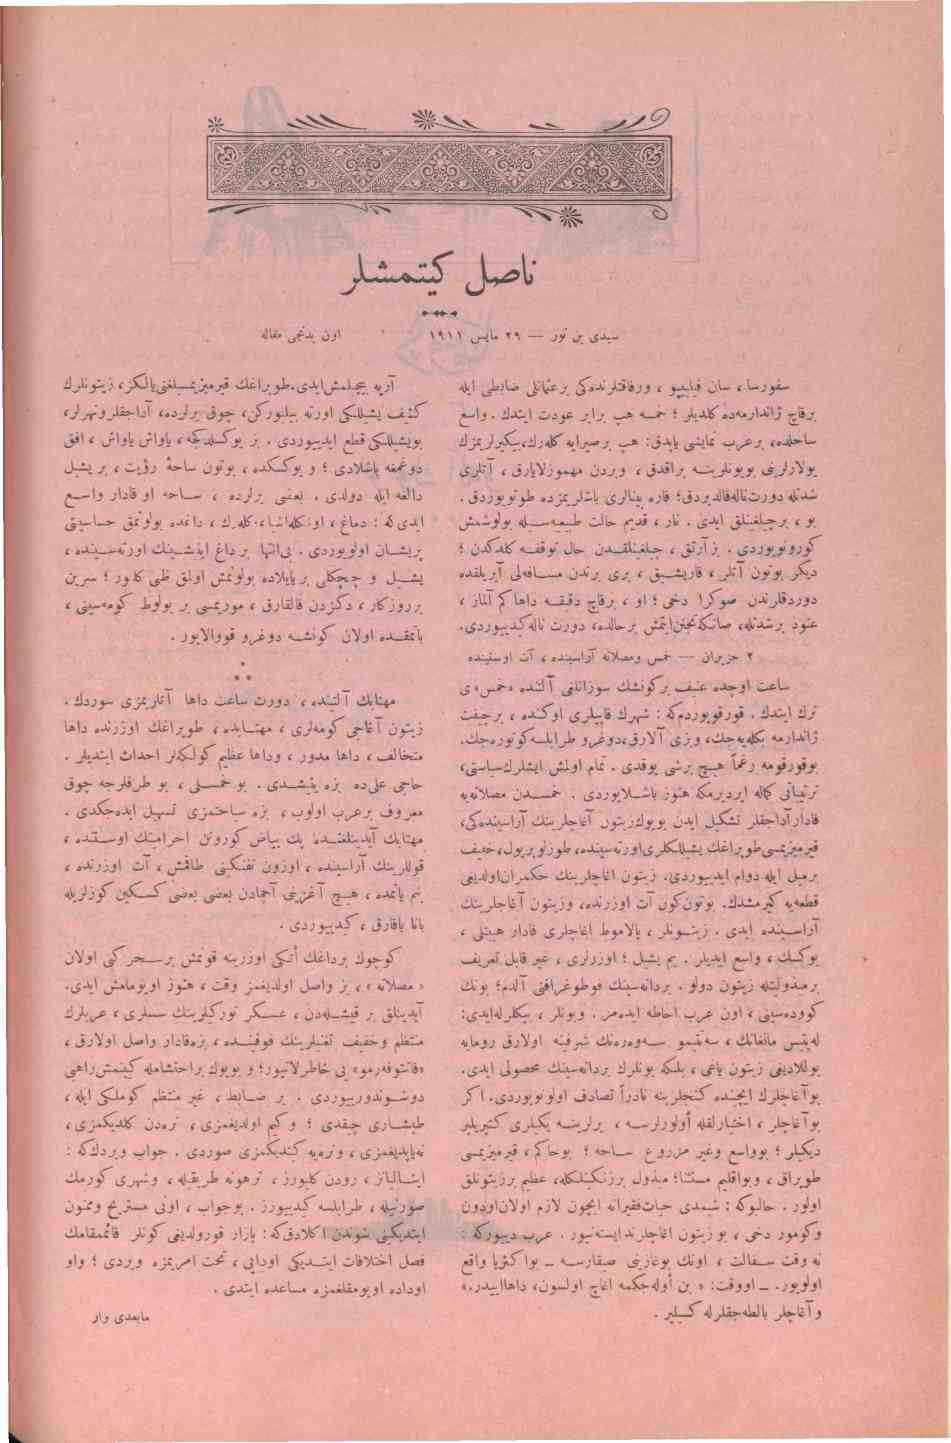 ناصل كیتمشلر
سیدی بن نور — ٢٩ مایس ١٩١١
اون یدنجی مقاله
سفورسا ، سان فیلیپو ، ورفاقتلرنده‌كی برعثمانلی ضابطی ایله
برقاچ ژاندارمه‌ده كلدیلر ؛ خمسه هپ برابر عودت ایتدك . واسع
ساحلده، برعرب نمایشی یاپدق: هپ برصیرایه كله‌رك، بیكیرلریمزك
یولارلرینی بویونلرینه براقدق ، وبردن مهموزلایارق ، آتلری
شدتله دورت‌ناله‌قالدیردق؛ قاره بینالری باشلریمزده طوتویوردق .
بو ، برچیلغینلق ایدی . نار ، قدیم حالت طبیعه‌سیله بولوشمش
كورونویوردی . بزآرتق ، چیلغینلقدن حال توقفه كلدكدن ؛
دیكر بوتون آتلر ، قاریشیق ، بری برندن مسافه‌لی آیریلقده
دوردقلرندن صوكرا دخی ؛ او ، برقاچ دقیقه داها كم آلماز ،
عنود برشدتله، صانكه‌تجنن‌ایتمش برحالده، دورت ناله‌كیدییوردی.
٢ حزیران — خمس ومصلانه آراسینده ، آت اوستینده
ساعت اوچده عنیف بركونشك سوزانلغی آلتنده «خمس» ی
ترك ایتدك . قورقویوردم‌كه : شهرك قاپیلری اوكنده ، برچیفت
ژاندارمه بكله‌یه‌جك، وبزی آلارق، دوغرو طرابلسه‌كوتوره‌جك.
بوقورقومه رغماً هیچ برشی یوقدی . تمام اولمش ایشلرك‌سیاستی،
ترتیباتی كماله ایردیرمكه هنوز باشلایوردی . خمسدن مصلانه‌یه
قادارآداجقلر تشكیل ایدن بویوك‌زیتون آغاجلرینك آراسینده‌كی،
قیرمیزیمسی‌طوپراغك یشیللكلری‌اورته‌سینده، طوزلوبریول، خفیف
برمیل ایله دوام ایدییوردی. زیتون اغاجلرینك حكمران‌اولدیغی
قطعه‌یه كیرمشدك. بوتون‌كون آت اوزرنده، وزیتون آغاجلرینك
آراسینده ایدی . زیتونلر ، پالاموط اغاجلری قادار هیبتلی ،
یوكسك ، واسع ایدیلر . یم یشیل ؛ اوزرلری ، غیر قابل تعریف
برمبذولیتله زیتون دولو . بردانه‌سینك فوطوغرافنی آلدم؛ بونك
كووده‌سینی ، اون عرب احاطه ایده‌مز . وبونلر ، بیكلرله‌ایدی:
له‌پتیس مانغانك ، سه‌پتیمو سه‌وه‌ره‌نك شرفینه اولارق رومایه
یوللادیغی زیتون یاغی ، بلكه بونلرك بردانه‌سینك محصولی ایدی.
بوآغاجلرك ایچنده كنجلرینه نادراً تصادف اولونویوردی. اكر
بوآغاجلر ، اختیارلقله أولورلرسه ، یرلرینه یكیلری كتیریلیر
دیكیلر ؛ بوواسع وغیر مزروع ساحه ؛ بوحاكم ، قیرمیزیمسی
طوپراق ، وبواقلیم مستثنا؛ مبذول برزنكینلكله، عظیم برزیتونلق
اولور . حالبوكه : شیمدی حیات‌فقیرانه ایچون لازم اولان‌اودون
وكومور دخی ، بو زیتون اغاجلرندایسته‌نیور . عرب دییوركه :
نه وقت سفالت ، اونك بوغازینی صیقارسه ـ بو اكثریا واقع
اولویور. ـ اووقت: « بن أوله‌جكمه اغاج اولسون، داهااییدر.»
وآغاچلر بالطه‌جقلرله كسیلیر .
آرپه بیچیلمش‌ایدی. طوپراغك قیرمیزیمسیلغنی‌یالكز، زیتونلرك
كثیف یشیللكی اورته بیلیوركن، چوق یرلرده، آداجقلرونهرلر،
بویشیللكی قطع ایدییوردی . بز یوكسلدكجه ، یاواش یاواش ، افق
دوغمغه باشلادی ؛ و یوكسكده ، بوتون ساحهٔ رؤیت ، بر یشیل
دالغه ایله دولدی . بعضی یرلرده ، ساحه او قادار واسع
ایدی‌كه : دماغ ، اونكله‌اشا، كله‌رك ، داغده بولونمق حساسیتی
پریشان اولویوردی . بی‌انتها برداغ ایتشینك اورته‌سینده ،
یشیل و چیچكلی بر یایلاده بولونمش اولمق ظنی كلور ؛ سرین
برروزكار ، دكزدن قالقارق ، مورمسی بر بولوط كومه‌سینی ،
باتمقده اولان كونشه دوغرو قووالایور .
مهتابك آلتینده ، دورت ساعت داها آتلریمزی سوردك .
زیتون آغاجی كومه‌لری ، مهتابده ، طوپراغك اوزرنده داها
متخالف ، داها مدور ، وداها عظیم كولكه‌لر احداث ایتدیلر .
حاجی علی‌ده بزه یتیشدی . بو خمسلی ، بو طرفلرجه چوق
معروف برعرب اولوب ، بزه سیاحتمزی تسهیل ایده‌جكدی .
مهتابك آیدینلغنده پك بیاض كورونن احرامنك اوستنده ،
قوللرینك آراسینده ، اوزون تفنكنی طاقمش ، آت اوزرنده ،
یم یانمده ، هیچ آغزینی آچمادن بعضی بعضی كسكین كوزلریله
بانا باقارق ، كیدییوردی .
كوچوك برداغك أتكی اوزرینه قونمش برسحر كبی اولان
« مصلانه » ، بز واصل اولدیغمز وقت ، هنوز اویومامش ایدی.
آیدینلق بر قیشله‌دن ، عسكر توركیلرینك سسلری ، عربلرك
منتظم وخفیف تغنیلرینك فوقنده ، بزه‌قادار واصل اولارق ،
«قانتوفه‌رمو» یی خاطرلاتیور؛ و بویوك براحتشامله كیینمش‌راهبی
دوشوندورییوردی . بر ضابط ، غیر منتظم كوملكی ایله ،
طیشاری چیقدی ؛ وكیم اولدیغمزی ، نره‌دن كلدیكمزی ،
نه‌یاپدیغمزی ، ونره‌یه كیتدیكمزی صوردی . جواب ویردك‌كه :
ایتالیانز ، رودن كلیورز ، ترهونه طریقیله ، وشهری كورمك
صورتیله ، طرابلسه كیدییورز . بوجواب ، اونی مستریح وممنون
ایتدیكنی شوندن اكلادق‌كه : پازار قورولدیغی كونلر قائممقامك
فصل اختلافات ایتدیكی اودایی ، تحت امریمزه ویردی ؛ واو
اوداده اویومقلغمزه مساعده ایتدی .
مابعدی وار